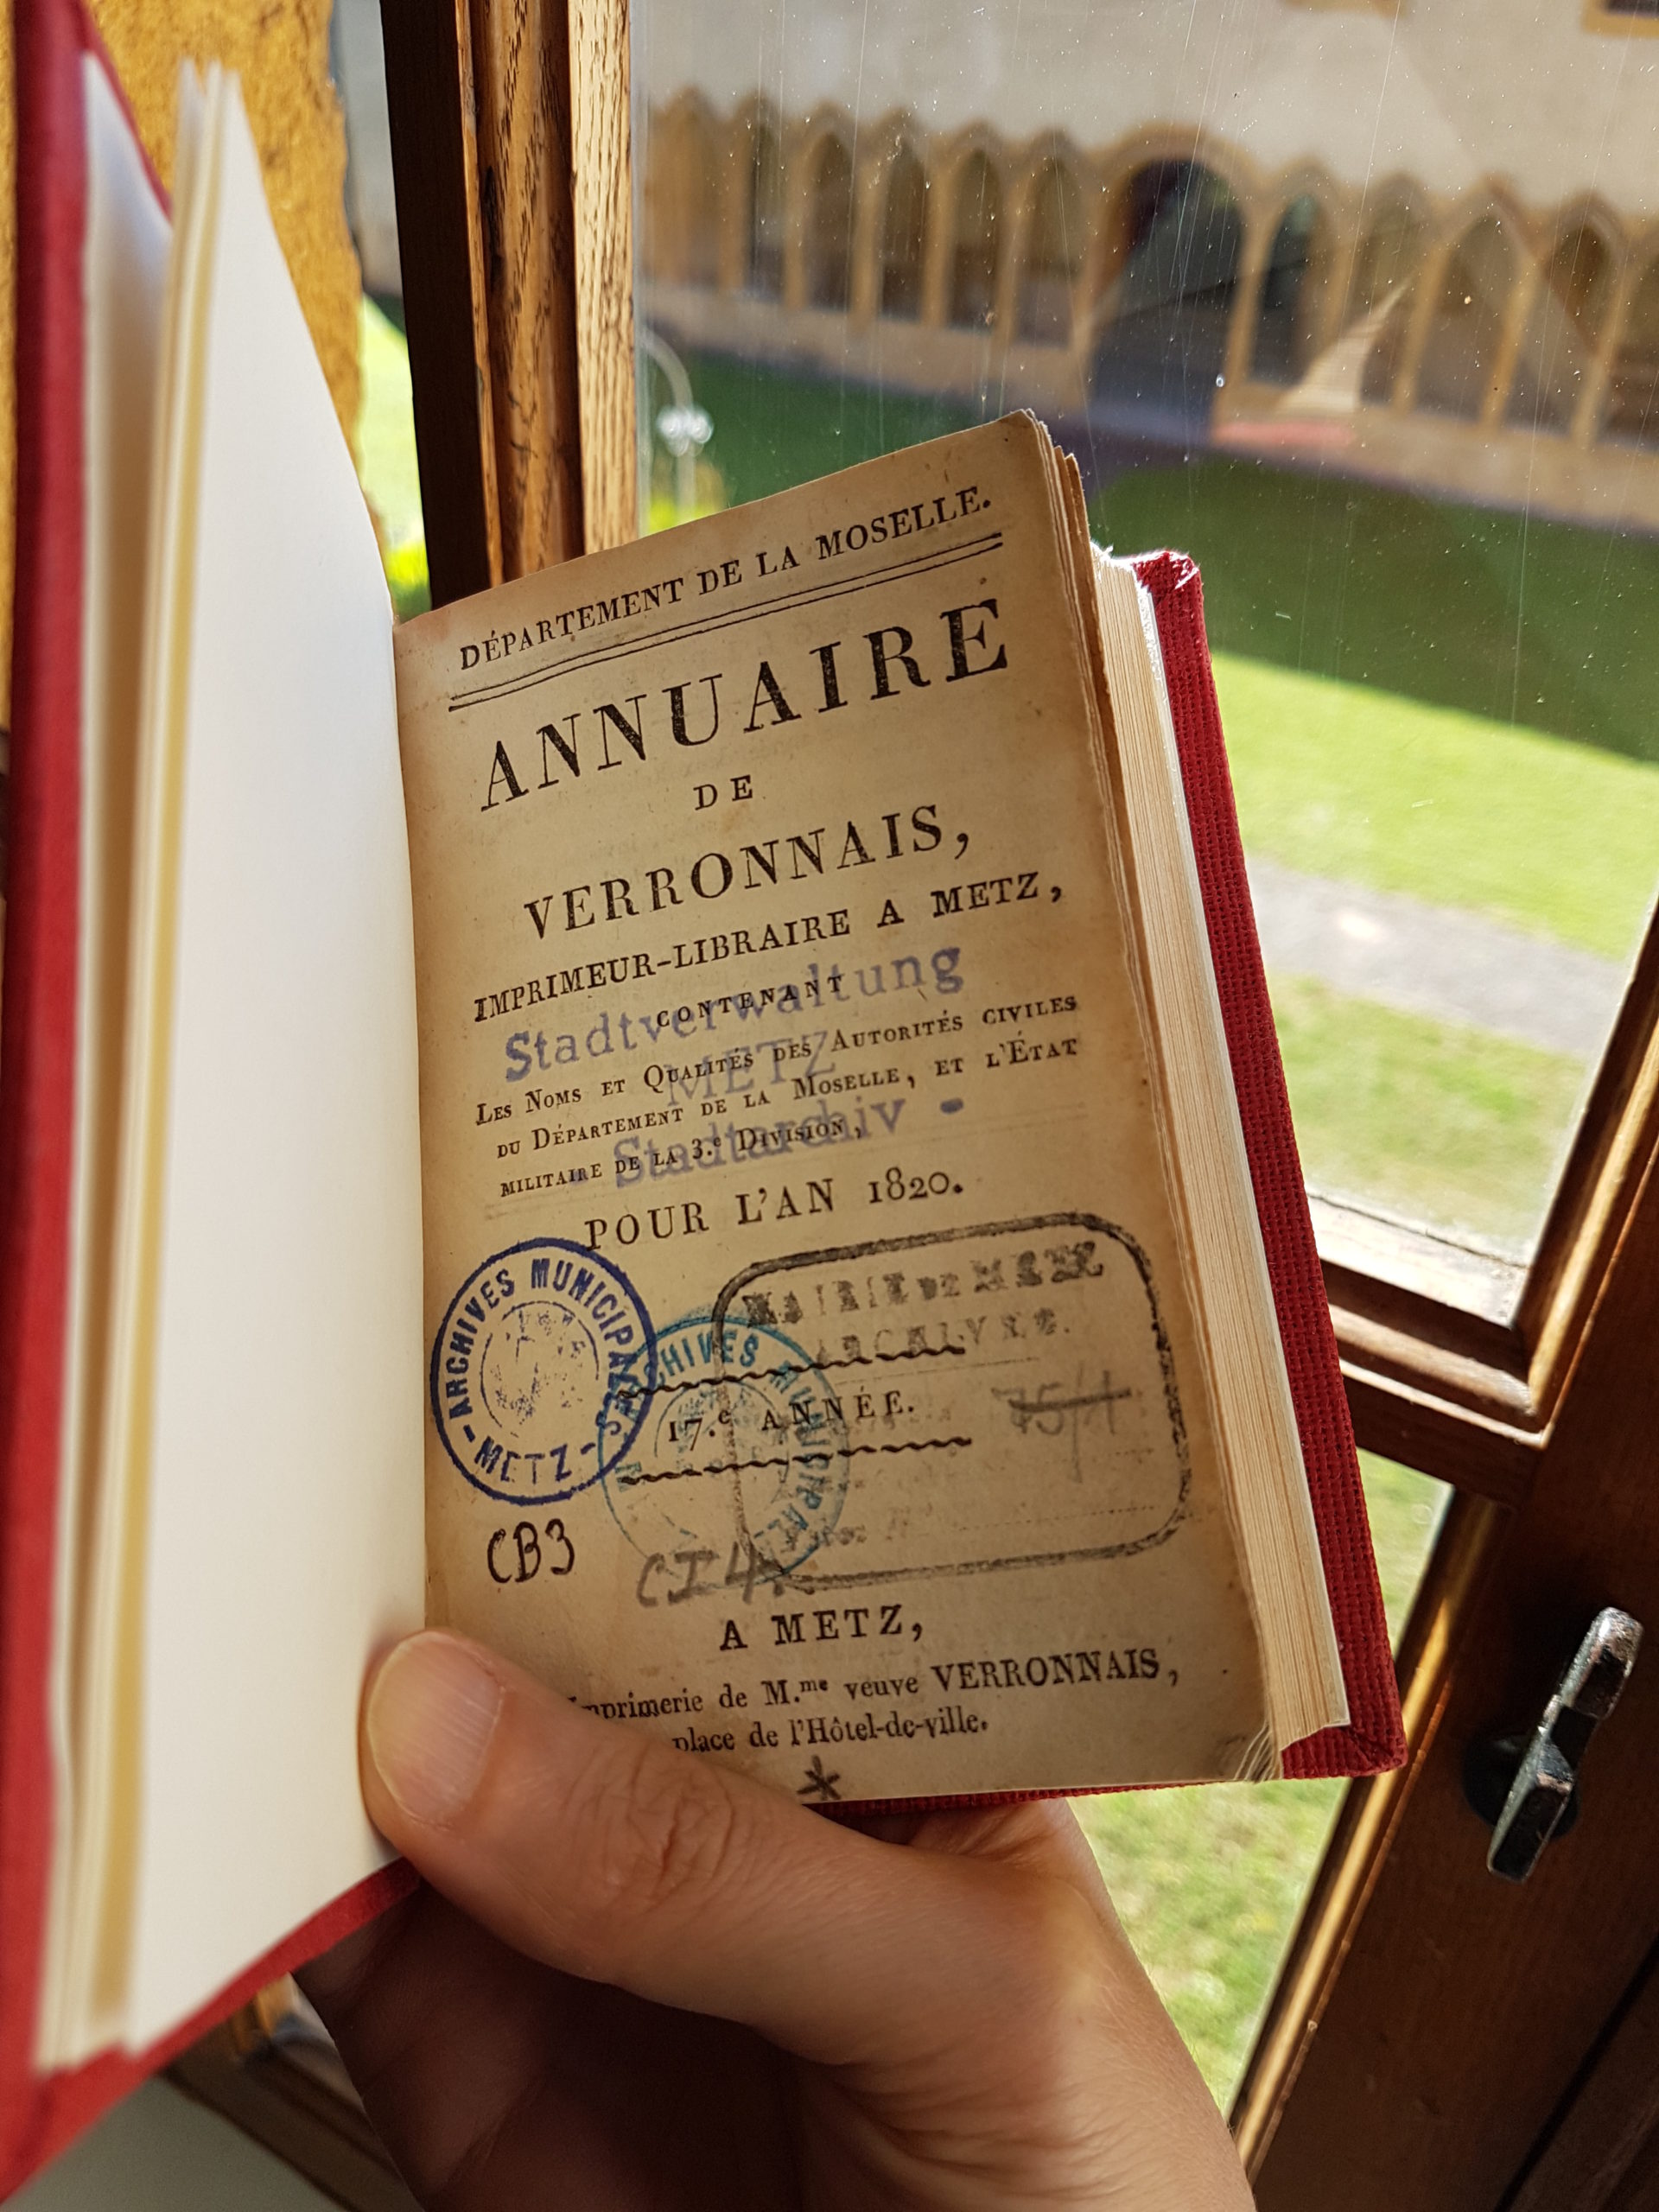 DÉPARTEMENT DE LA MOSELLE.
ANNUAIRE
DE
VERRONNAIS,
IMPRIMEUR-LIBRAIRE A METZ,
CONTENANT
Stadtverwaltung
METZ
- Stadtarchiv -
LES NOMS ET QUALITÉS DES AUTORITÉS CIVILES
DU DÉPARTEMENT DE LA MOSELLE, ET L'ÉTAT
MILITAIRE DE LA 3.e DIVISION,
POUR L'AN 1820.
ARCHIVES MUNICIPALES
- METZ -
ARCHIVES MUNICIPALES
MAIRIE DE METZ
ARCHIVES.
75/1
17.e ANNÉE.
CB3
CI4.
A METZ,
Imprimerie de M.me veuve VERRONNAIS,
place de l'Hôtel-de-ville.
*